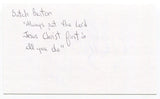 Butch Buxton
"Always put the Lord
Jesus Christ first in
all you do"